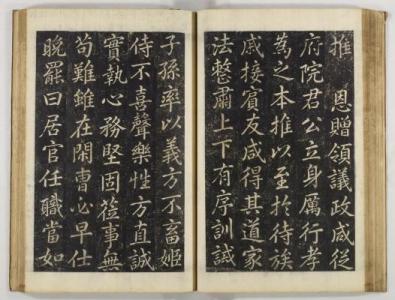 推　恩贈領議政咸從
府院君公立身厲行孝
為之本推以至於待族
戚接賓友咸得其道家
法整肅上下有序訓誡
子孫率以義方不畜姬
侍不喜聲樂性方直誠
實執心務堅固莅事無
苟難雖在閑曺必早仕
晚罷曰居官任職當如